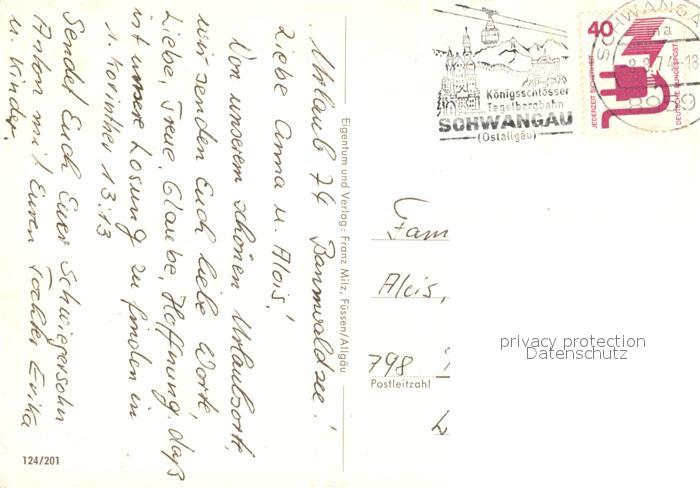 Urlaub 74 Bannwaldsee!
Liebe Anna u. Alois!
Von unserem schönen Urlaubsort,
wir senden Euch liebe Worte,
Liebe, Treue, Glaube, Hoffnung, daß
ist unsere Losung zu finden in
1. Korinther 13.13
Sendet Euch Euer Schwiegersohn
Anton mit Euren Tochter Erika
u. Kinder.
124/201
Eigentum und Verlag: Franz Milz, Füssen/Allgäu
Königsschlösser
Tegelbergbahn
SCHWANGAU
(Ostallgäu)
SCHWANGA
40
JEDERZEIT SICHERHEIT
DEUTSCHE BUNDESPOST
Fam
Alois,
798
Postleitzahl
privacy protection
Datenschutz